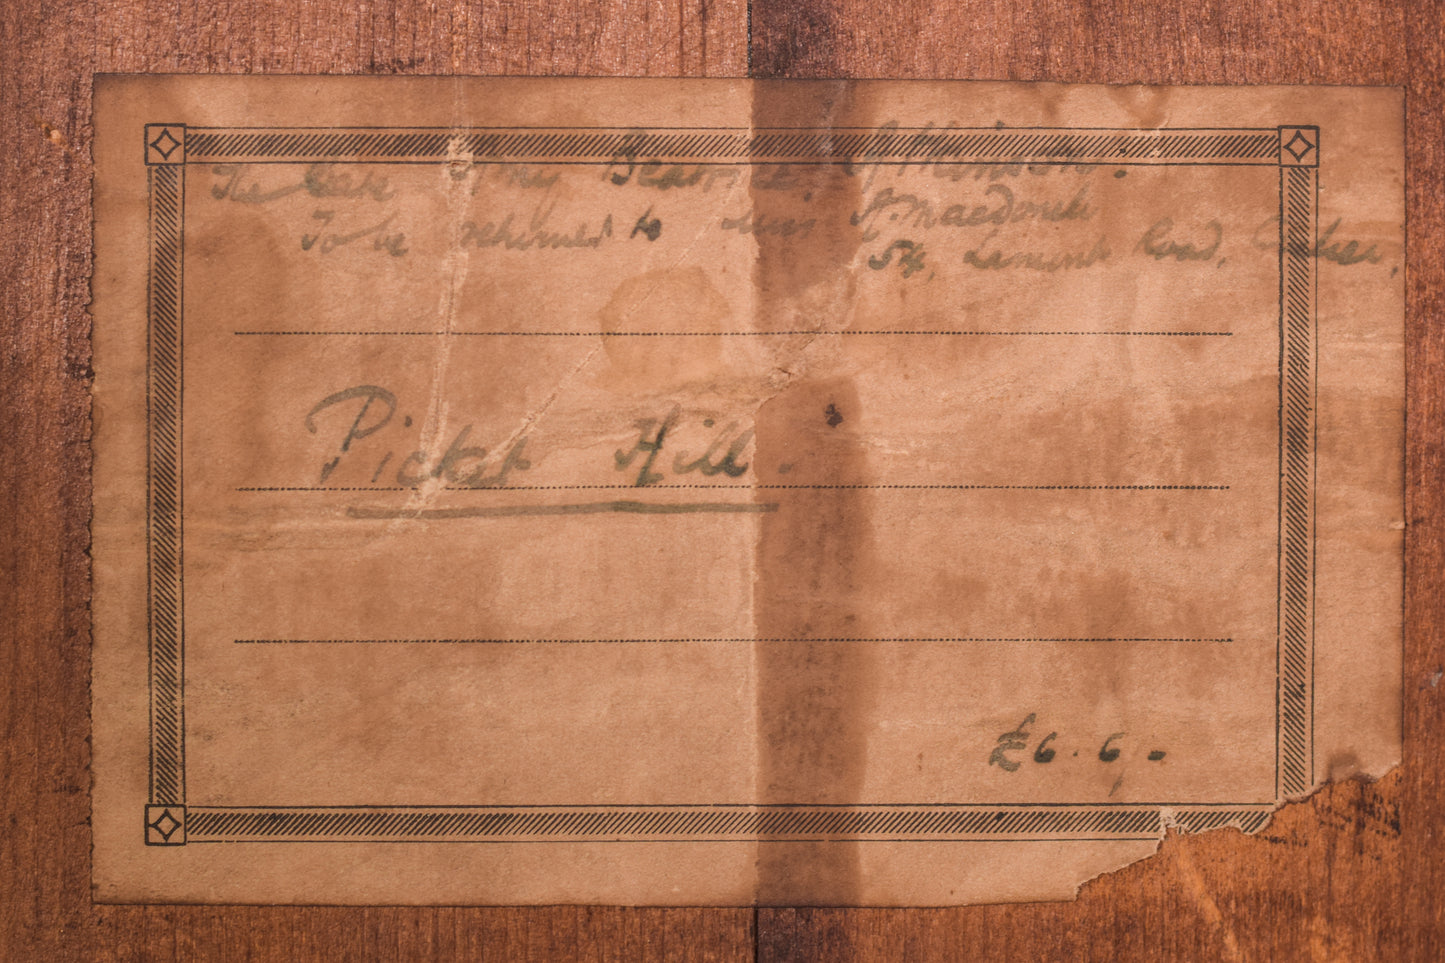 The late Amy Beatrice Atkinson.
To be returned to Miss A. Macdonald
54, Lamont Road, Chelsea,
Picket Hill.
£6.6.-